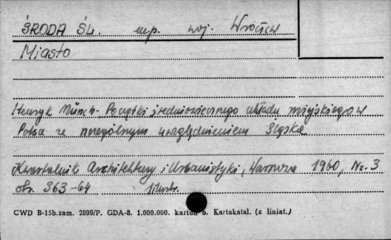 ŚRODA ŚL. mp. woj. Wrocław
Miasto
Henryk Münch - Początki średniowiecznego układu miejskiego w
Polsce ze szczególnym uwzględnieniem Śląska
Kwartalnik Architektury i Urbanistyki, Warszawa 1960, No. 3
str. 363-64 Ilustr.
CWD B-15b. zam. 2898/P. GDA-8. 1.000.000. karton b. Kartakatal. (z liniat.)